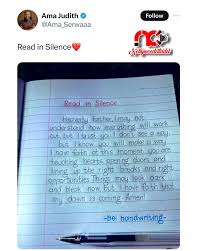 Ama Judith
@Ama_Serwaaa
Follow
Read in Silence❤️
Read in Silence
Heavenly father, I may not
understand how everything will work
out, but I trust you. I don't see a way,
but I know you will make a way.
I have faith at this moment you are
touching hearts, opening doors and
lining up the right breaks and right
opportunities. Things may look dark
and bleak now, but I have faith that
my dawn is coming. Amen!
-Bei handwriting-